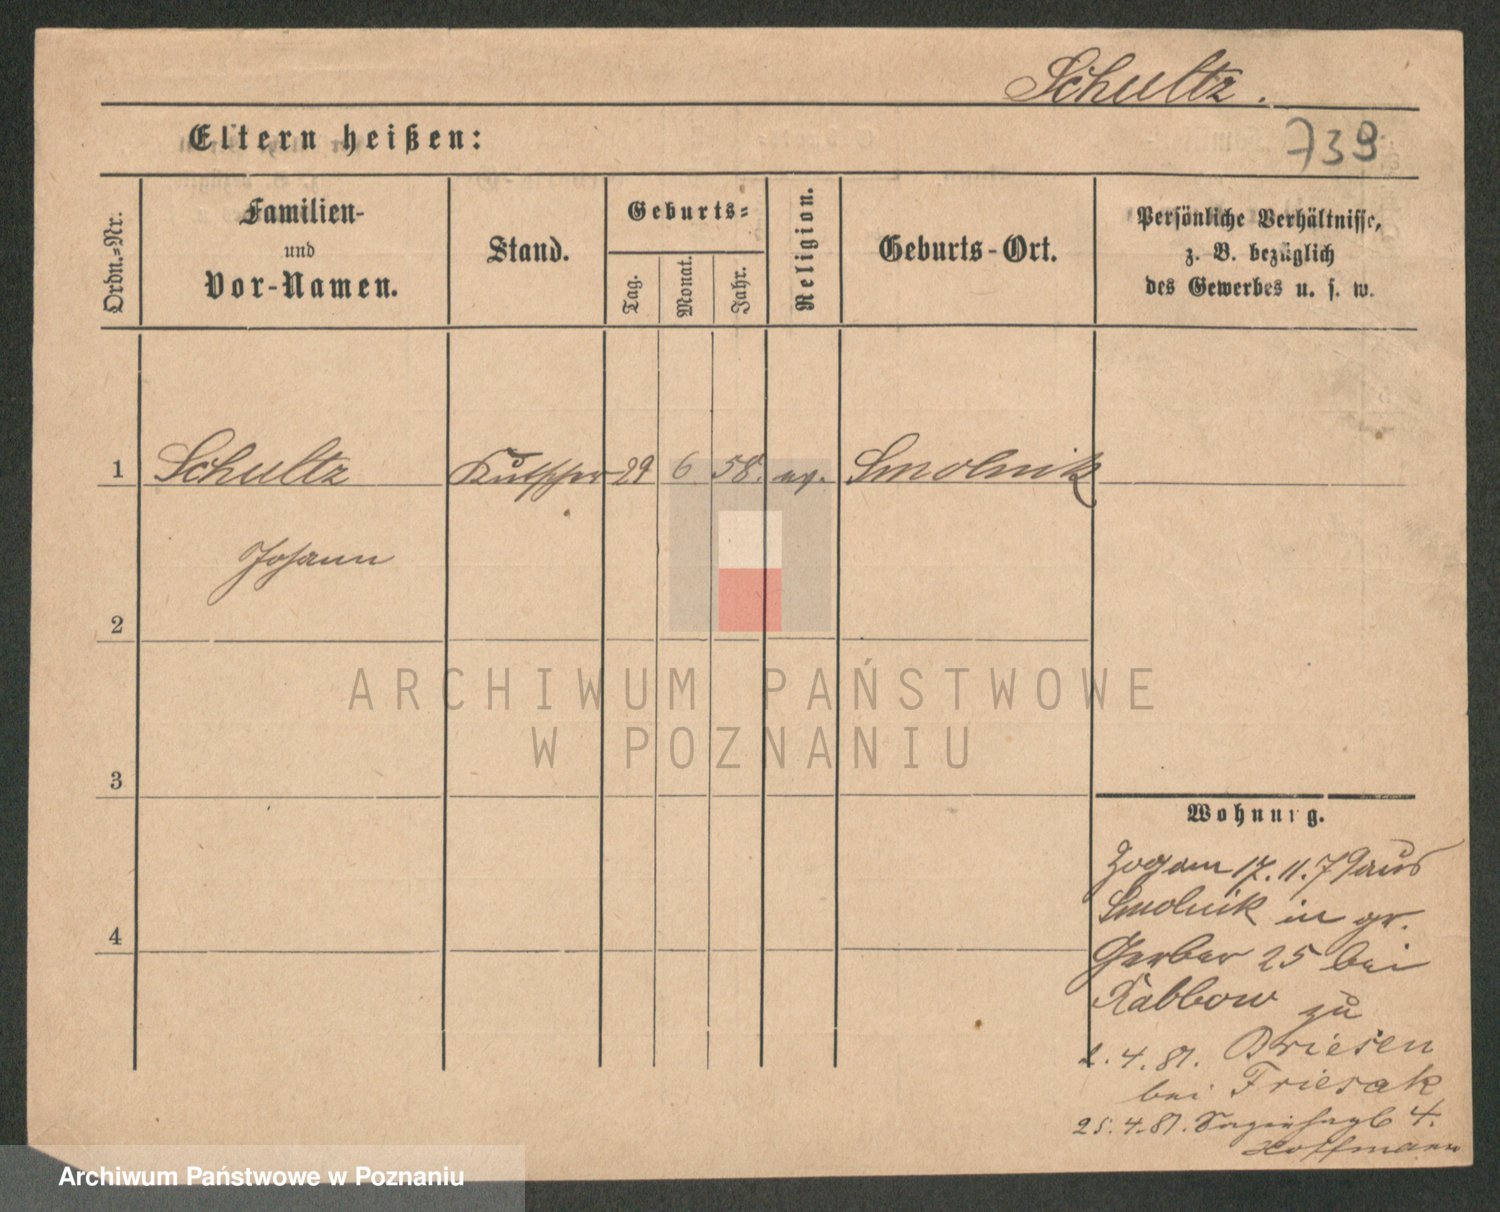 Schultz.
Eltern heißen:
739
Ordn.-Nr.
Familien-
und
Vor-Namen.
Stand.
Geburts-
Tag.
Monat.
Jahr.
Religion.
Geburts-Ort.
Persönliche Verhältnisse,
z. B. bezüglich
des Gewerbes u. s. w.
1 Schultz Kutscher 29 6 58. ev. Smolnik
Johann
2
3
4
Wohnung.
Zog am 17.11.79 aus
Smolnik in gr.
Gerber 25 bei
Rabbow zu
2.4.81. Briesen
bei Friesak
25.4.81. 4.
Hoffmann
ARCHIWUM PAŃSTWOWE
W POZNANIU
Archiwum Państwowe w Poznaniu